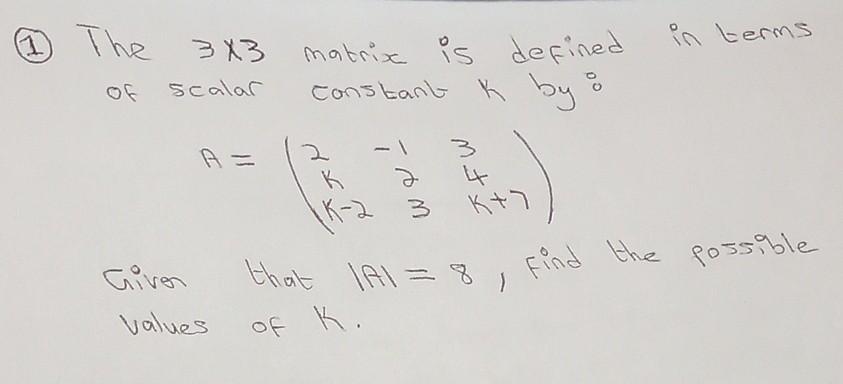 ① The 3x3 matrix is defined in terms
of scalar constant K by:
A = (2 -1 3
K 2 4
K-2 3 K+7)
Given that |A| = 8, Find the possible
values of K.